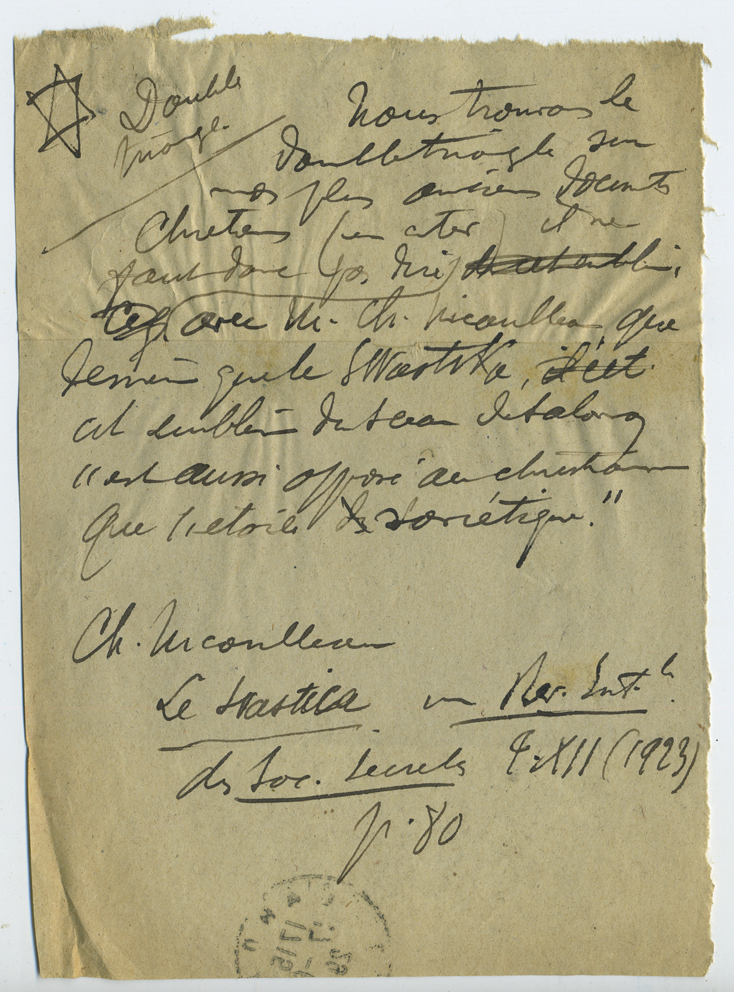 Double
triangle.
Nous trouvons le
double triangle sur
nos plus anciens documents
Chretiens (en citer) il ne
faut donc pas dire
avec M. Ch. Nicoulleau que
que le Swastika, il est
cet emblème du sceau de Salomon
"est aussi opposé au christianisme
que l'etoile soviétique."
Ch. Nicoulleau
Le Swastica in Rev. Int.le
des Soc. Secretes T. XII (1923)
p. 80